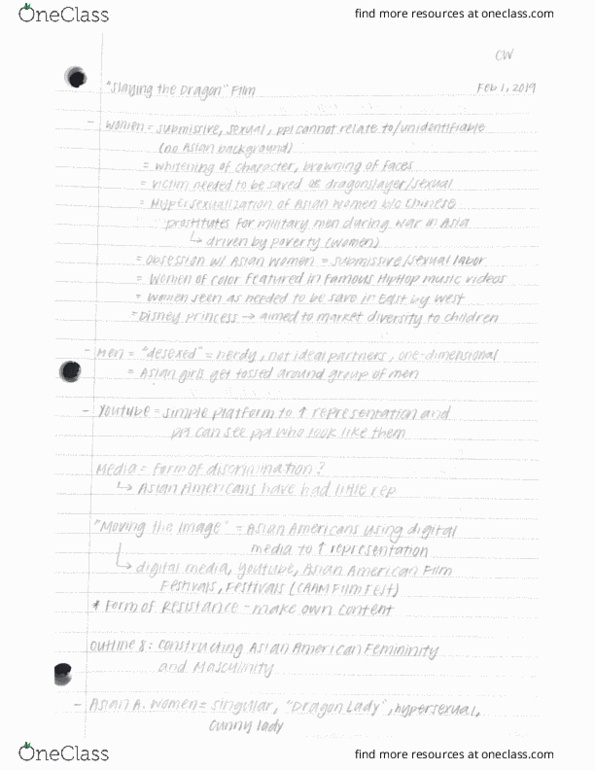 OneClass
find more resources at oneclass.com
CW
"Slaying the Dragon" Film
Feb 1, 2019
- Women = submissive, sexual, ppl cannot relate to/unidentifiable
(no Asian background)
= whitening of character, browning of faces
= victim needed to be saved or dragonslayer/sexual
= Hypersexualization of Asian women b/c Chinese
prostitutes for military men during war in Asia
↳ driven by poverty (women)
= obsession w/ Asian women = submissive/sexual labor
= Women of color featured in famous HipHop music videos
= women seen as needed to be save in East by West
= Disney Princess → aimed to market diversity to children
- Men = "desexed" = nerdy, not ideal partners, one-dimensional
= Asian girls get tossed around group of men
- Youtube = simple platform to ↑ representation and
ppl can see ppl who look like them
Media = form of discrimination?
↳ Asian Americans have had little rep
"Moving the Image" = Asian Americans using digital
media to ↑ representation
↳ digital media, Youtube, Asian American Film
Festivals, Festivals (CAAM Film Fest)
Form of Resistance - make own content
Outline 8: Constructing Asian American Femininity
and Masculinity
- Asian A. Women = singular, "Dragon Lady", hypersexual,
lady
OneClass
find more resources at oneclass.com